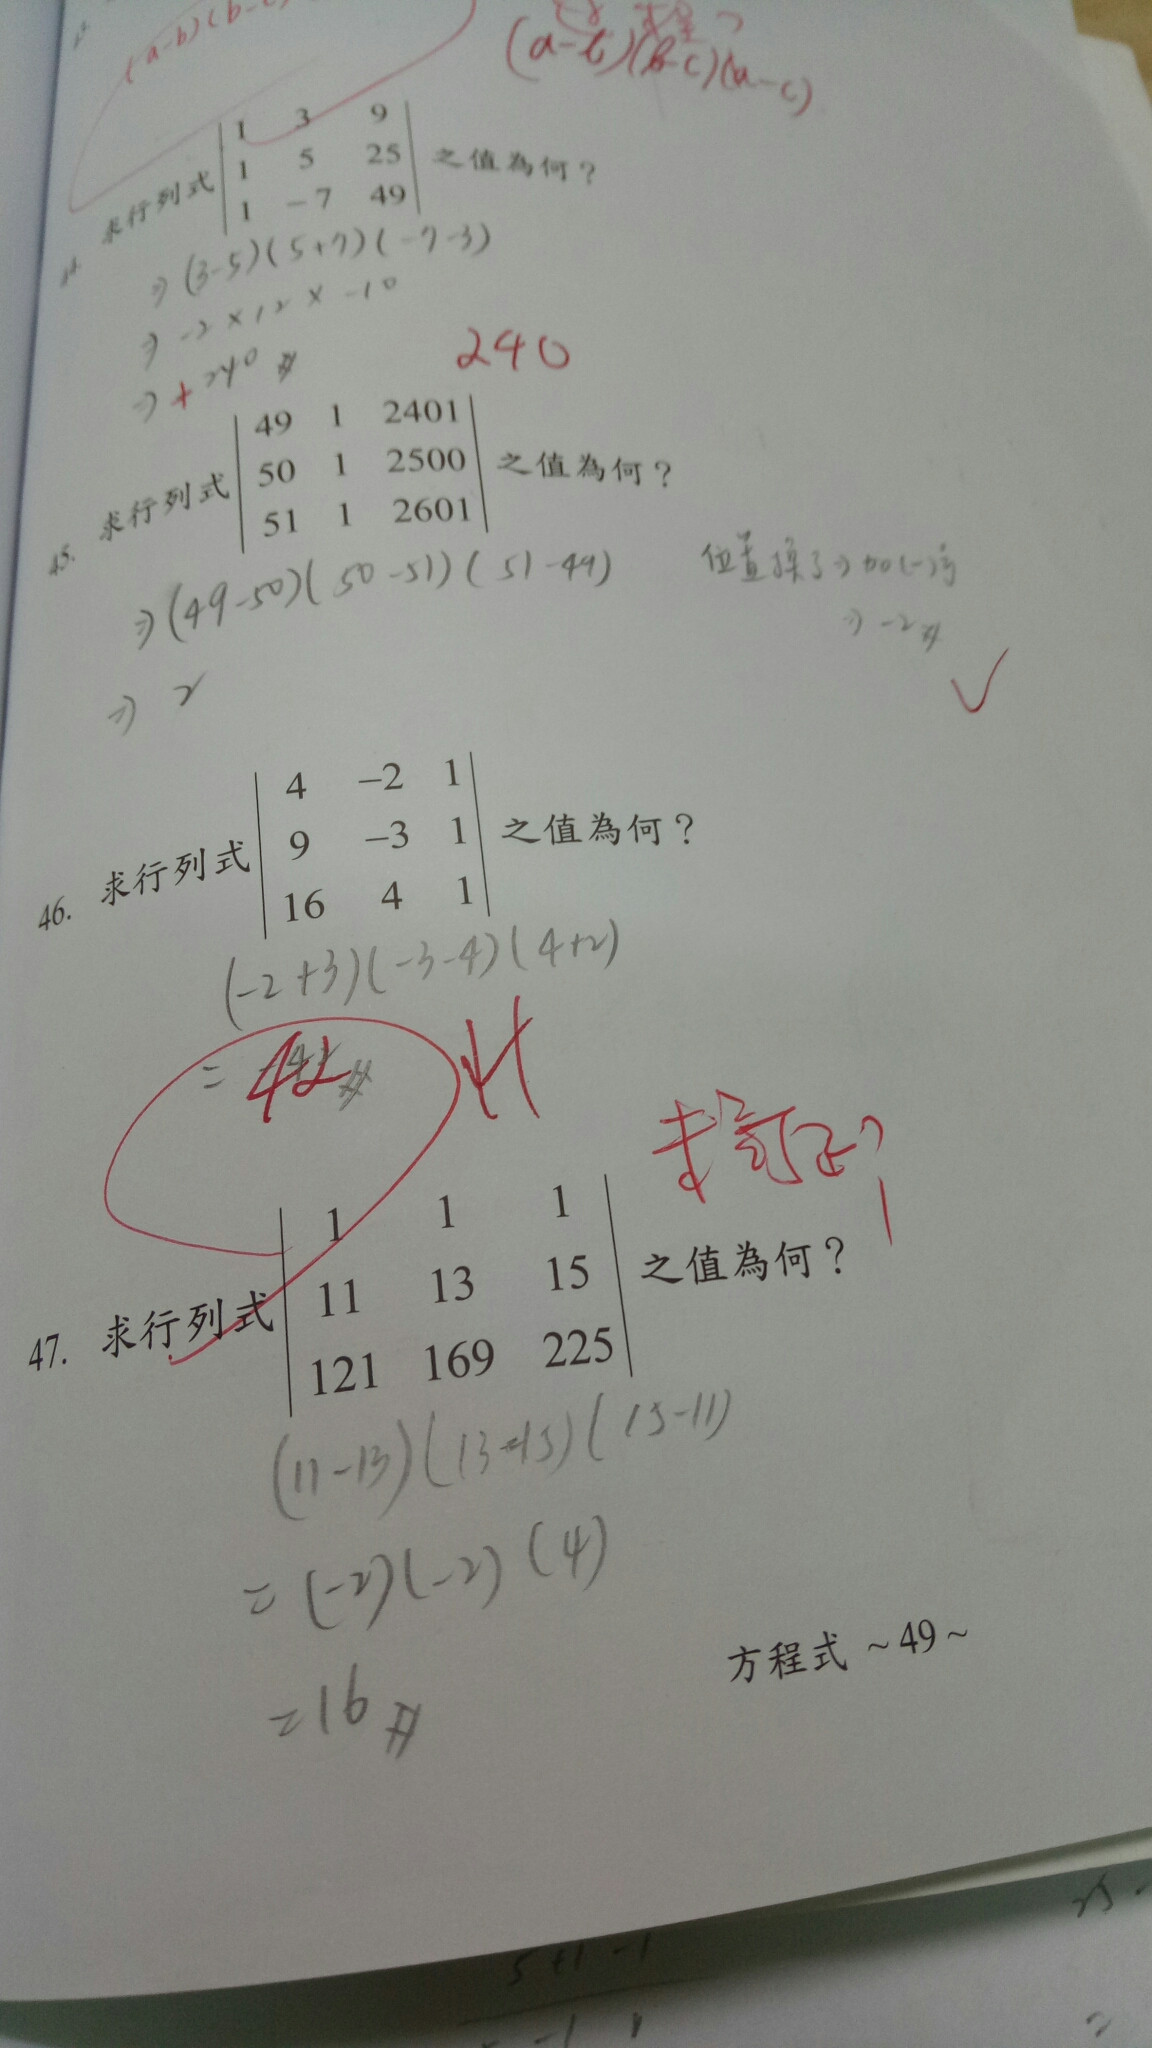 (a-b)(b-c)
(a-b)(b-c)(a-c)
求行列式 | 1 3 9 | 之值為何?
1 5 25
1 -7 49
⇒ (3-5)(5+7)(-7-3)
⇒ -2 × 12 × -10
⇒ + 240 #
240
45. 求行列式 | 49 1 2401 | 之值為何?
50 1 2500
51 1 2601
⇒ (49-50)(50-51)(51-49)
位置換了⇒加(-)號
⇒ -2 #
⇒ 2
46. 求行列式 | 4 -2 1 | 之值為何?
9 -3 1
16 4 1
(-2+3)(-3-4)(4+2)
= 42 #
47. 求行列式 | 1 1 1 | 之值為何?
11 13 15
121 169 225
(11-13)(13-15)(15-11)
= (-2)(-2)(4)
= 16 #
方程式 ~49~
5+1-1